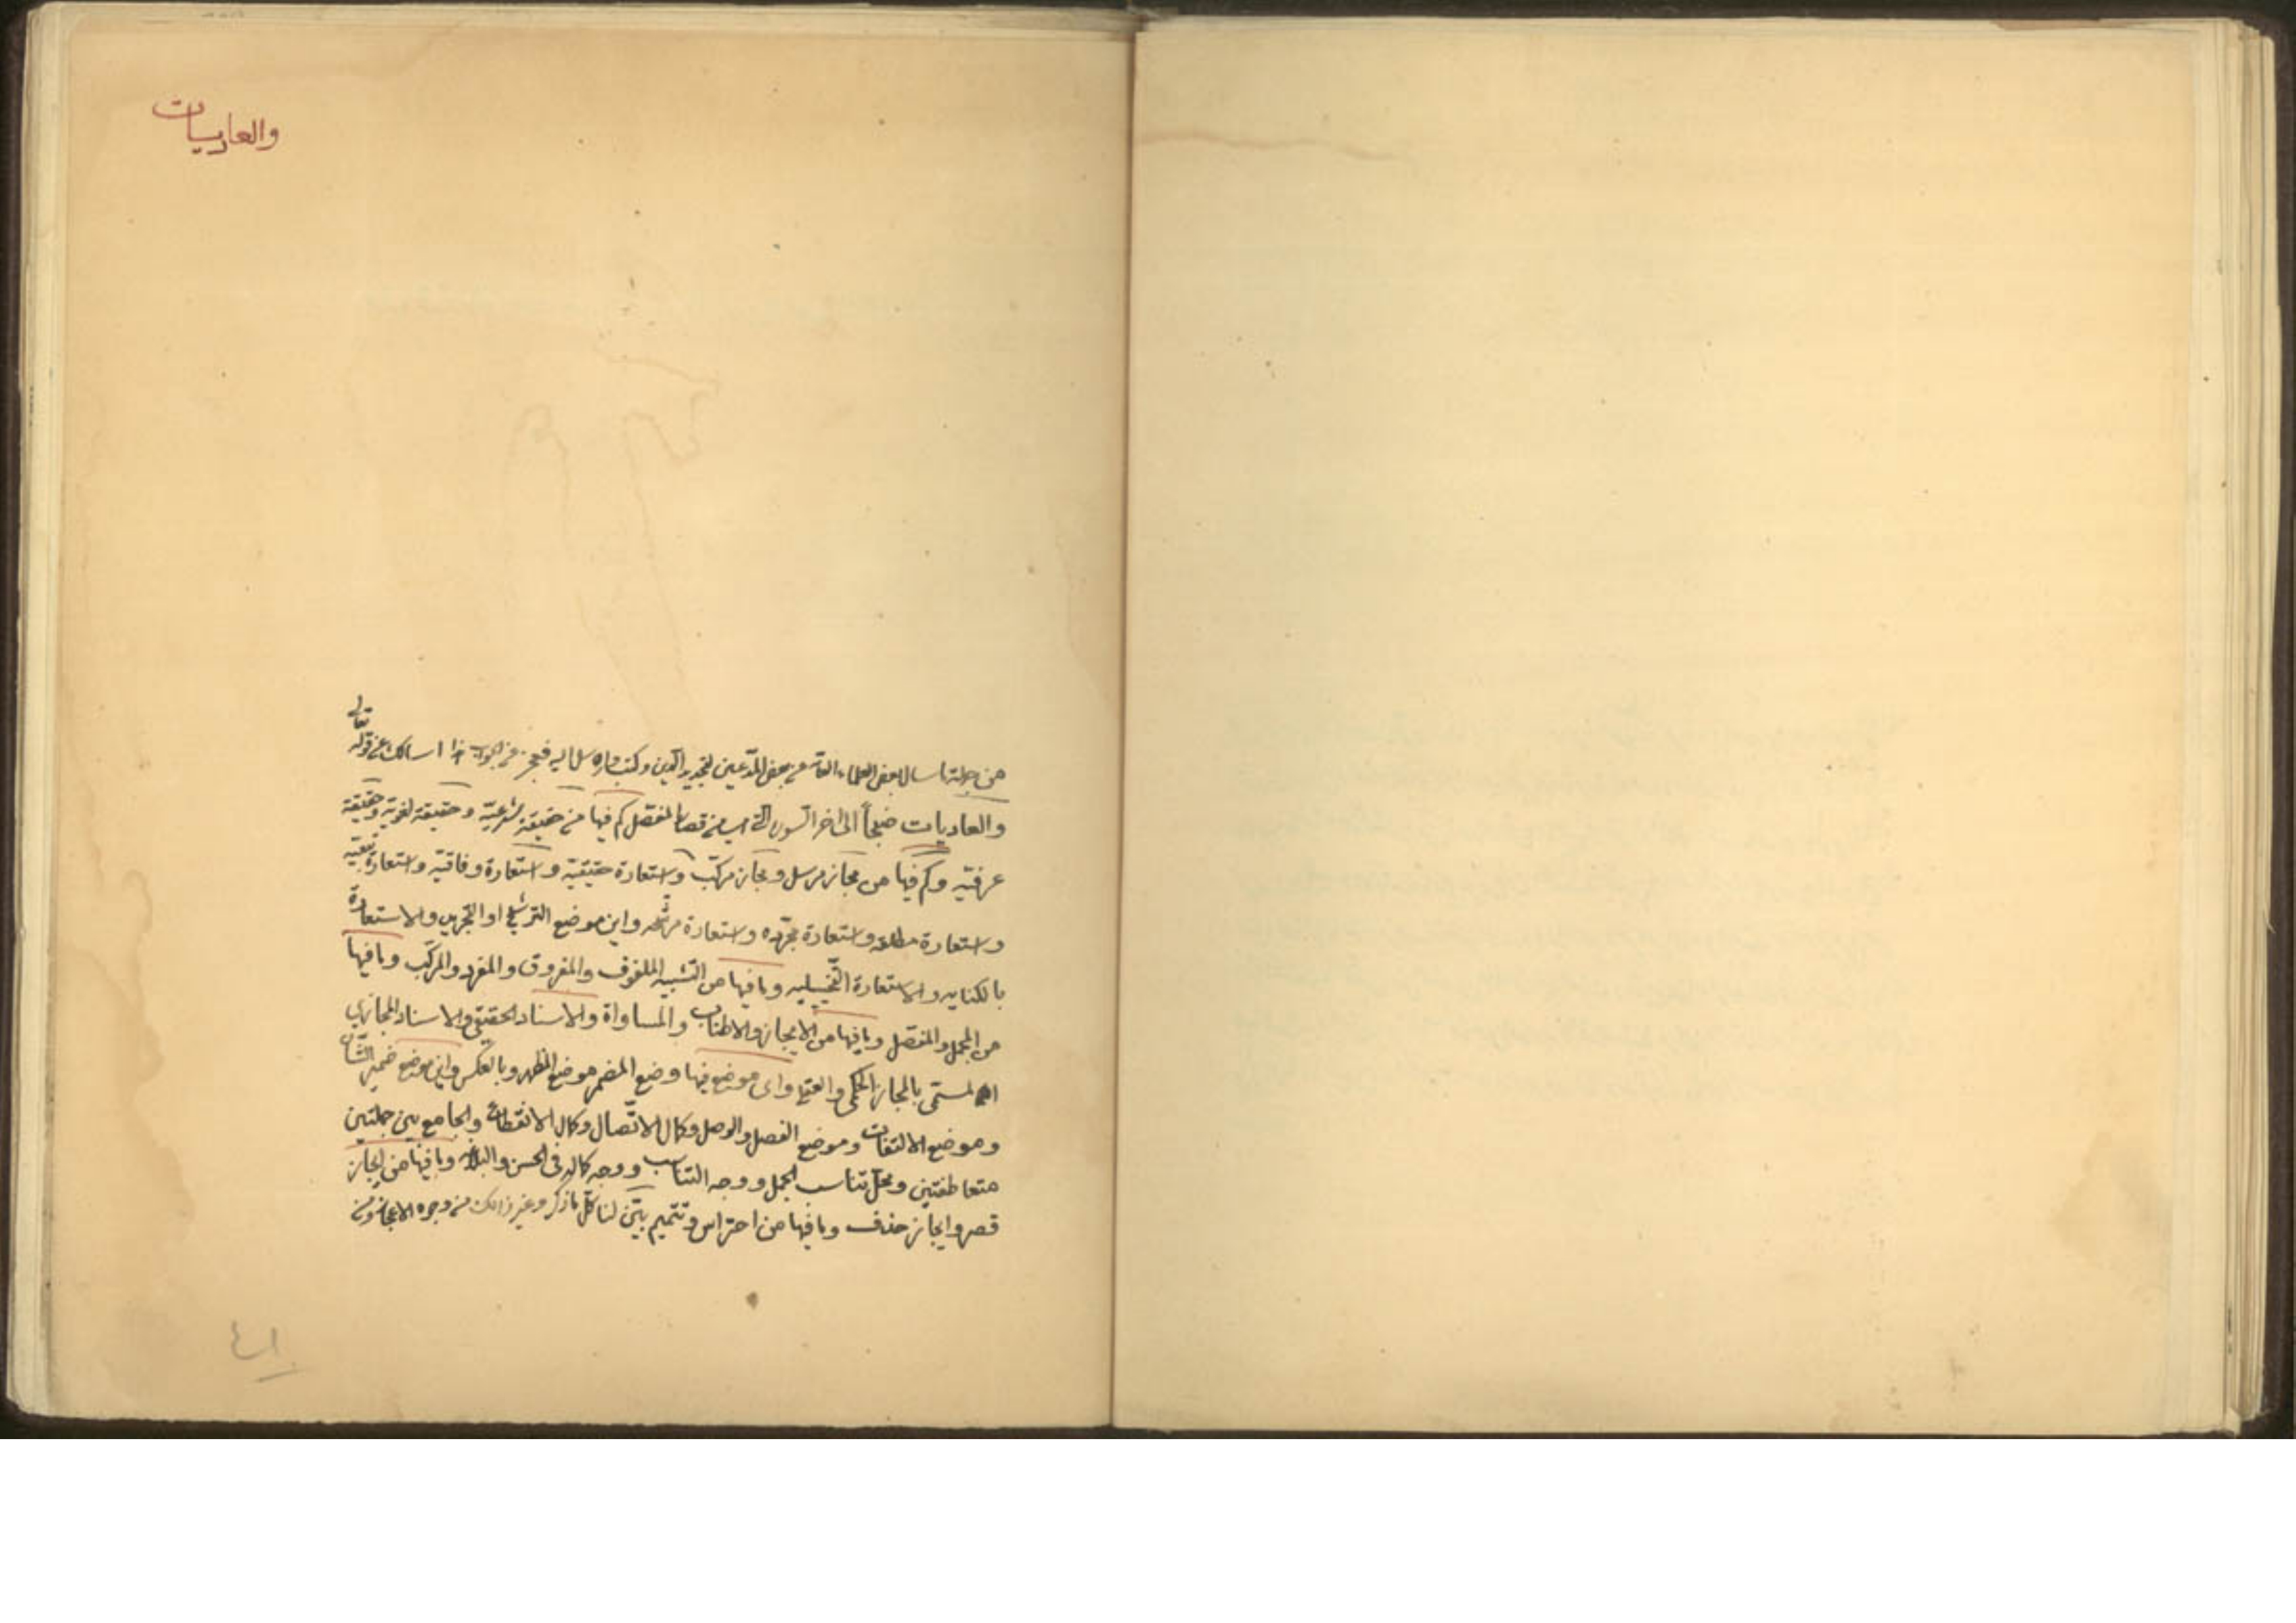 والعاديات
من جملة اسال بعض العلماء من بعض المدّعين لتجديد الدين وكتب اليه فعجز عن الجواب هذا اسالك عن قوله تعالى
والعاديات ضبحاً الى اخر السورة التي هي من قصار المفصل كم فيها من حقيقة شرعيّة وحقيقة لغويّة وحقيقة
عرفيّه وكم فيها من مجاز مرسل ومجاز مركّب واستعارة حقيقيّة واستعارة وفاقيّه واستعارة تبعيّه
واستعارة مطلقه واستعارة مجرّده واستعارة مرشّحه واين موضع الترشيح او التجريد والاستعارة
بالكنايه والاستعارة التّخييليه وما فيها من التّشبيه الملفوف والمفروق والمفرد والمركّب وما فيها
من المجمل والمفصّل وما فيها من الايجاز والاطناب والمساواة والاسناد الحقيقي والاسناد المجازي
المسمّى بالمجاز الحكمي والعقلي واى موضع فيها وضع المضمر موضع المظهر وبالعكس واين موضع ضمير الشّان
وموضع الالتفات وموضع الفصل والوصل وكمال الاتّصال وكمال الانقطاع والجامع بين جملتين
متعاطفتين ومحلّ تناسب الجمل ووجه التناسب ووجه كماله فى الحسن والبلاغه وما فيها من ايجاز
قصر وايجاز حذف وما فيها من احتراس وتتميم بيّن لنا كلّ ما ذكر وغير ذالك من وجوه الاعجاز ومن